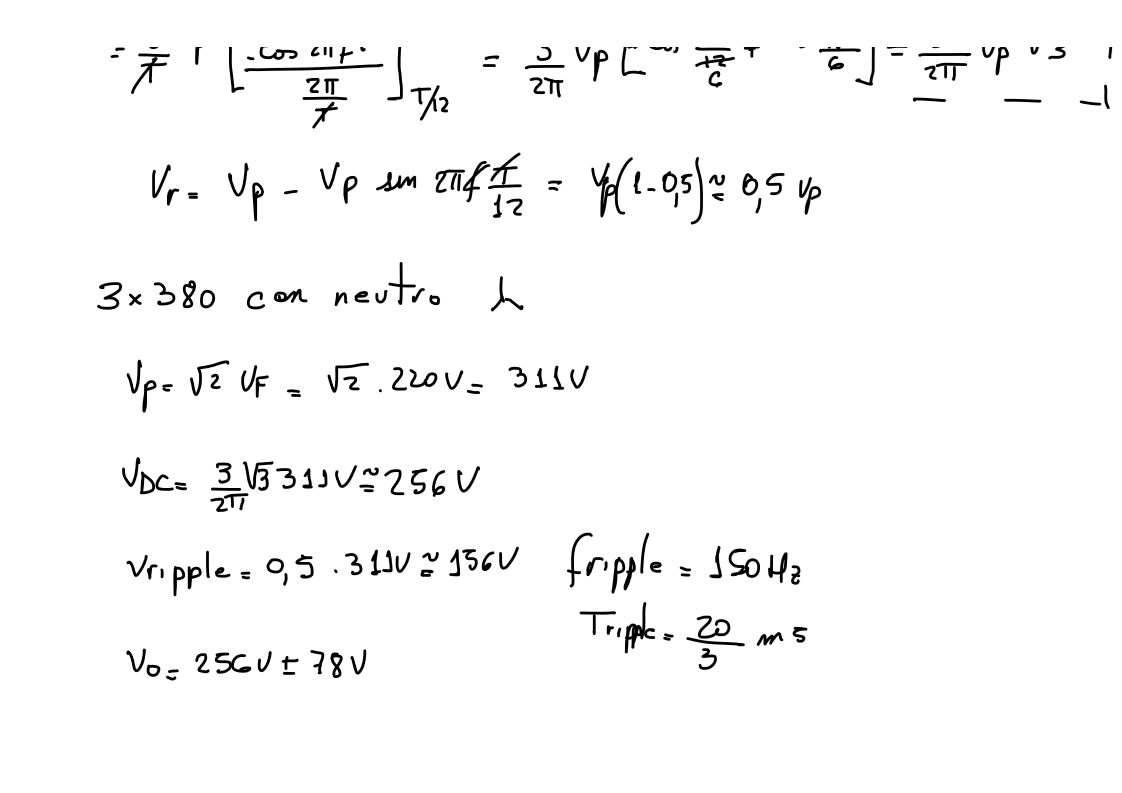 = [ -cos 2πf. / (2π/T) ] T/12 = 3/2π Vp [ 6 + 6 ] = /2π Vp √3
Vr = Vp - Vp sin 2πf T/12 = Vp(1-0,5) ≅ 0,5 Vp
3x380 con neutro
Vp= √2 VF = √2 . 220V = 311V
VDC= 3/2π √3 311V ≅ 256V
Vripple = 0,5 . 311V ≅ 156V fripple = 150Hz
Tripple = 20/3 ms
Vo = 256V ± 78V